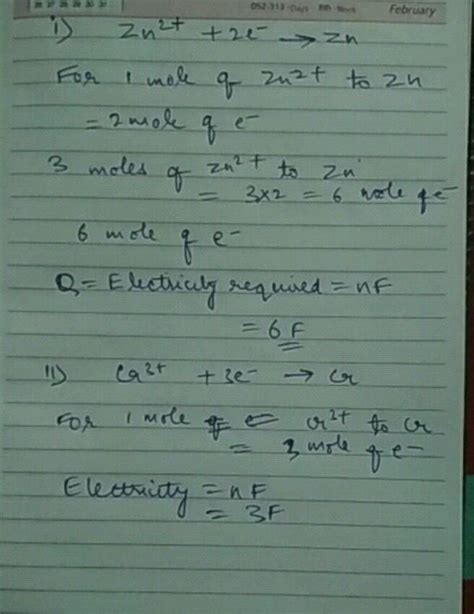 26 27 28 29 30 31
052-313 Days 8th Week February
i) Zn2+ + 2e- → Zn
For 1 mole of Zn2+ to Zn
= 2 mole of e-
3 moles of Zn2+ to Zn
= 3x2 = 6 mole of e-
6 mole of e-
Q = Electricity required = nF
= 6F
11) Cr3+ + 3e- → Cr
For 1 mole of Cr3+ to Cr
= 3 mole of e-
Electricity = nF
= 3F